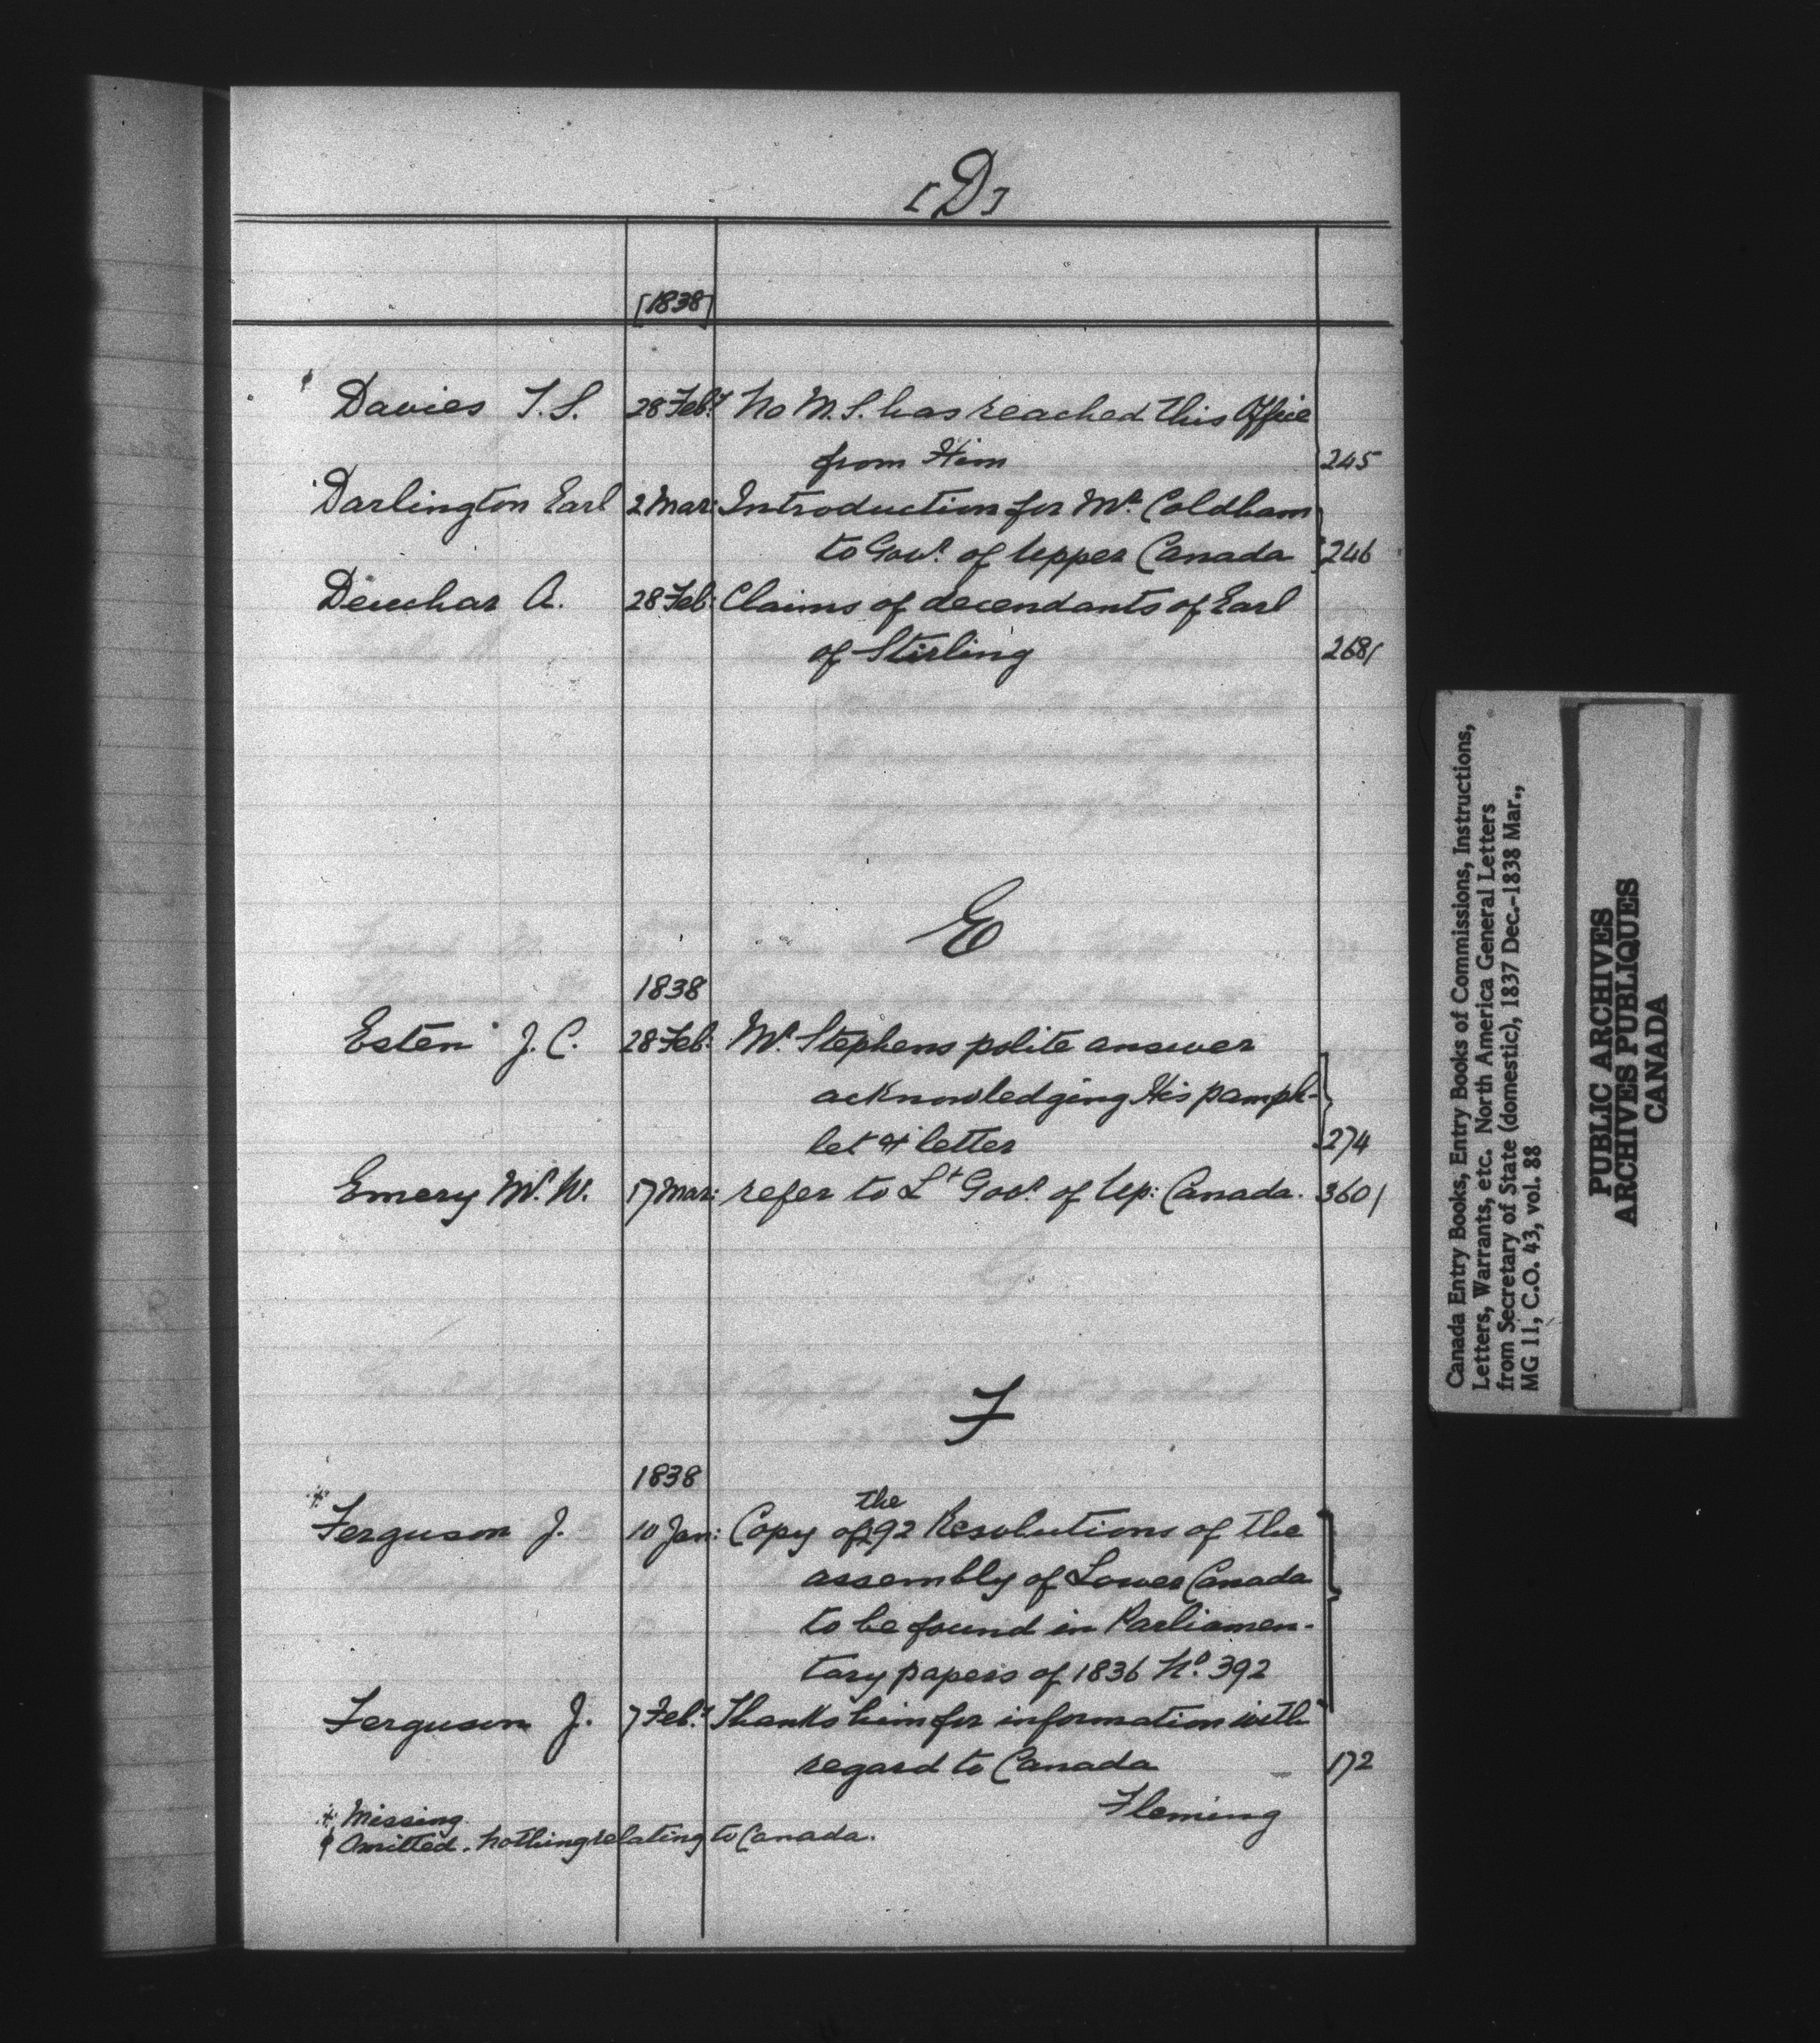 [D]
[1838]
Davies T. S. 28 Feby No M. S. has reached this Office
from Him 245
Darlington Earl 2 Mar: Introduction for Mr. Coldham
to Govr. of Upper Canada 246
Deuchar A. 28 Feb: Claims of decendants of Earl
of Stirling 268/
E
1838
Esten J. C. 28 Feb: Mr. Stephens polite answer
acknowledging His pamph-
let & letter 274
Emery W. W. 17 Mar: refer to Lt Govr. of Up: Canada. 360/
F
1838
the
+ Ferguson J. 10 Jan: Copy of 92 Resolutions of the
assembly of Lower Canada
to be found in Parliamen-
tary papers of 1836 No. 392
Ferguson J. 7 Feby. Thanks him for information with
regard to Canada 172
Fleming
+ Missing
φ Omitted. Nothing relating to Canada.
Canada Entry Books, Entry Books of Commissions, Instructions,
Letters, Warrants, etc. North America General Letters
from Secretary of State (domestic), 1837 Dec.-1838 Mar.,
MG 11, C.O. 43, vol. 88
PUBLIC ARCHIVES
ARCHIVES PUBLIQUES
CANADA